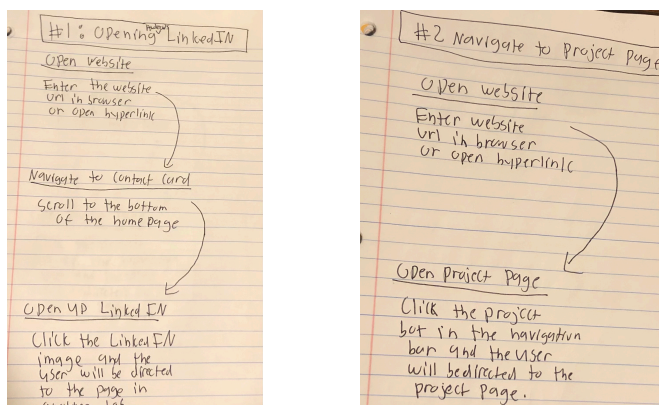 #1: Opening LinkedIN
Open website
Enter the website
url in browser
or open hyperlink
Navigate to contact card
Scroll to the bottom
of the homepage
Open up LinkedIN
Click the LinkedIN
image and the
user will be directed
to the page in
another tab
#2 Navigate to Project Page
Open website
Enter website
url in browser
or open hyperlink
Open Project Page
Click the project
bot in the navigation
bar and the user
will be directed to the
project page.